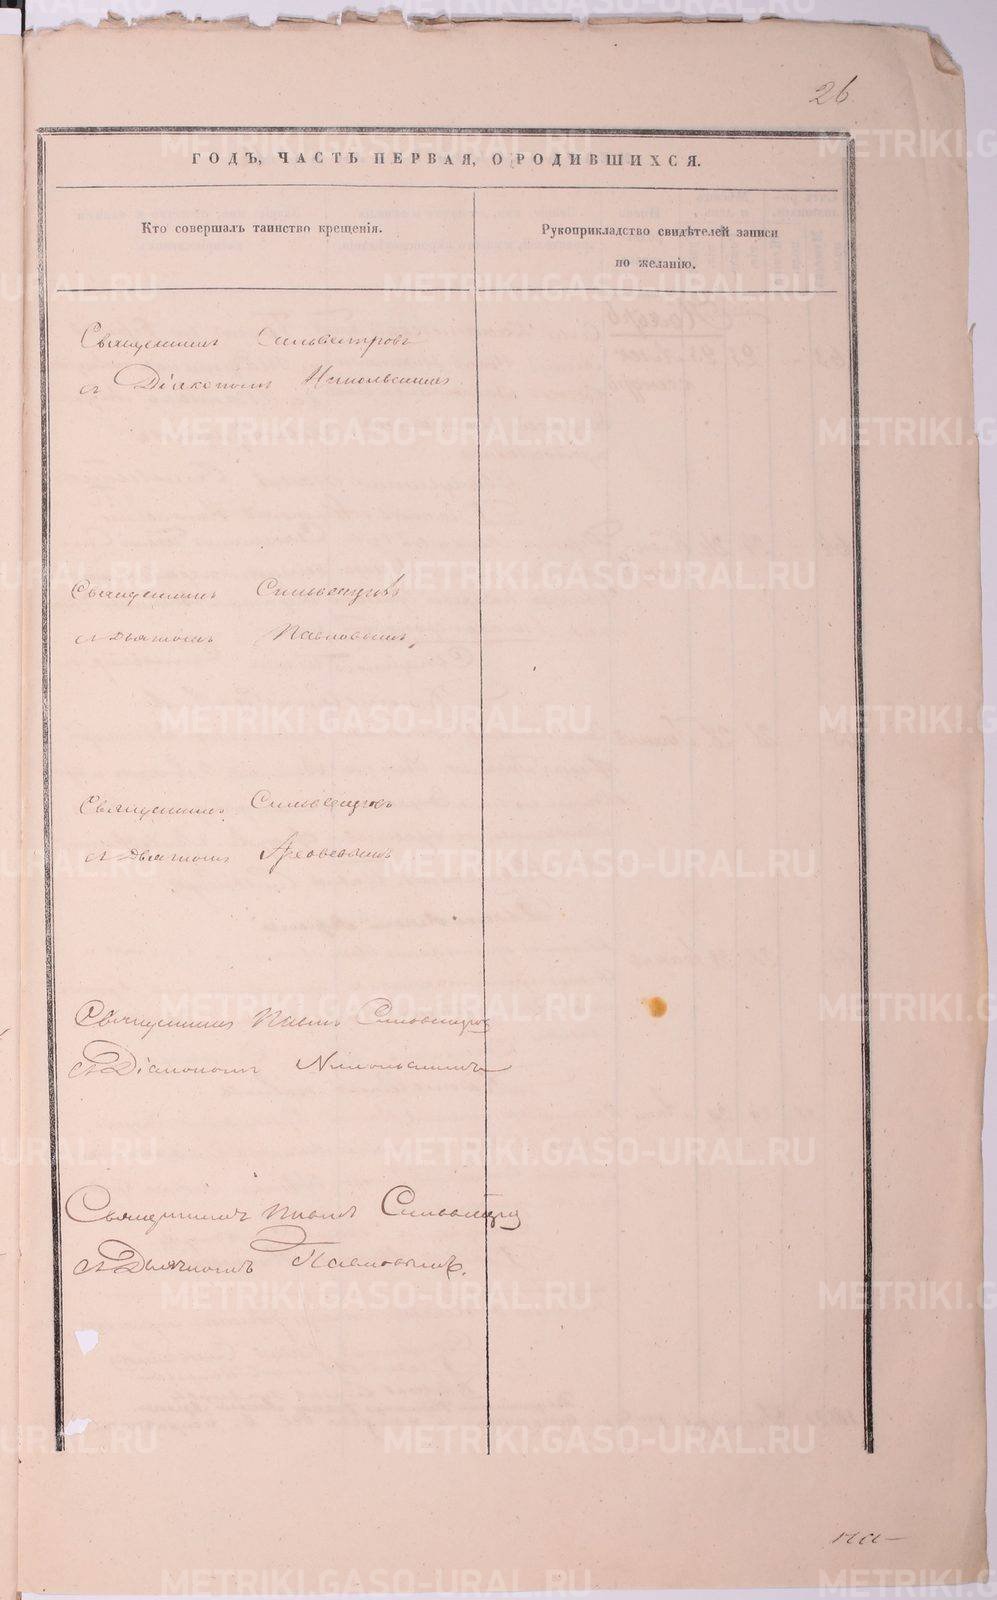 26
ГОДЪ, ЧАСТЬ ПЕРВАЯ, О РОДИВШИХСЯ.
Кто совершалъ таинство крещенія.
Рукоприкладство свидѣтелей записи
по желанію.
Священникъ Сильвестровъ
съ Діакономъ Никольскимъ
Священникъ Сильвестровъ
съ дьячкомъ Павловымъ,
Священникъ Сильвестровъ
съ дьячкомъ
Священникъ Павелъ Сильвестровъ
съ Діакономъ Никольскимъ
Священникъ Павелъ Сильвестровъ
съ Дьячкомъ Павловымъ.
METRIKI.GASO-URAL.RU